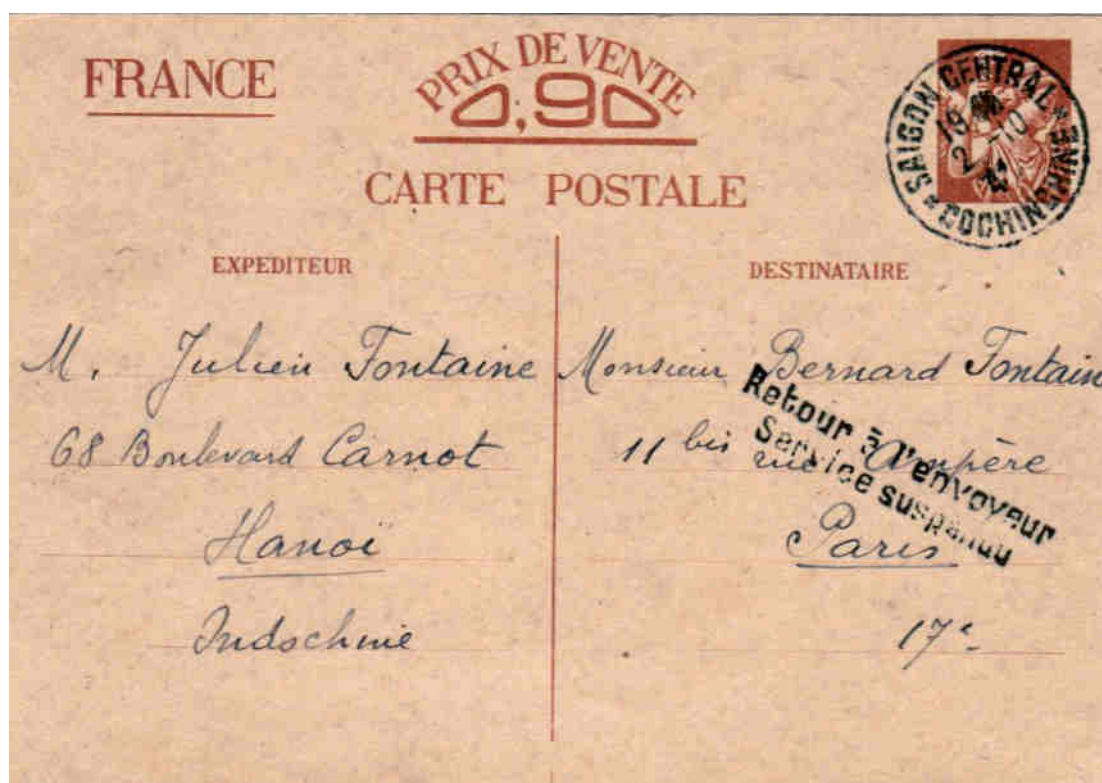 FRANCE
PRIX DE VENTE
0,90
CARTE POSTALE
SAIGON CENTRAL
19
2 -10
41
COCHINCHINE
EXPEDITEUR
M. Julien Fontaine
68 Boulevard Carnot
Hanoï
Indochine
DESTINATAIRE
Monsieur Bernard Fontain
11 bis rue Ampère
Paris
17e
Retour à l'envoyeur
Service suspendu